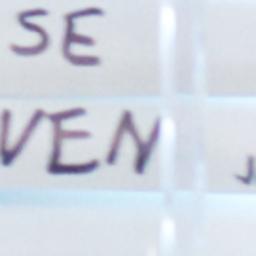 SE
VEN